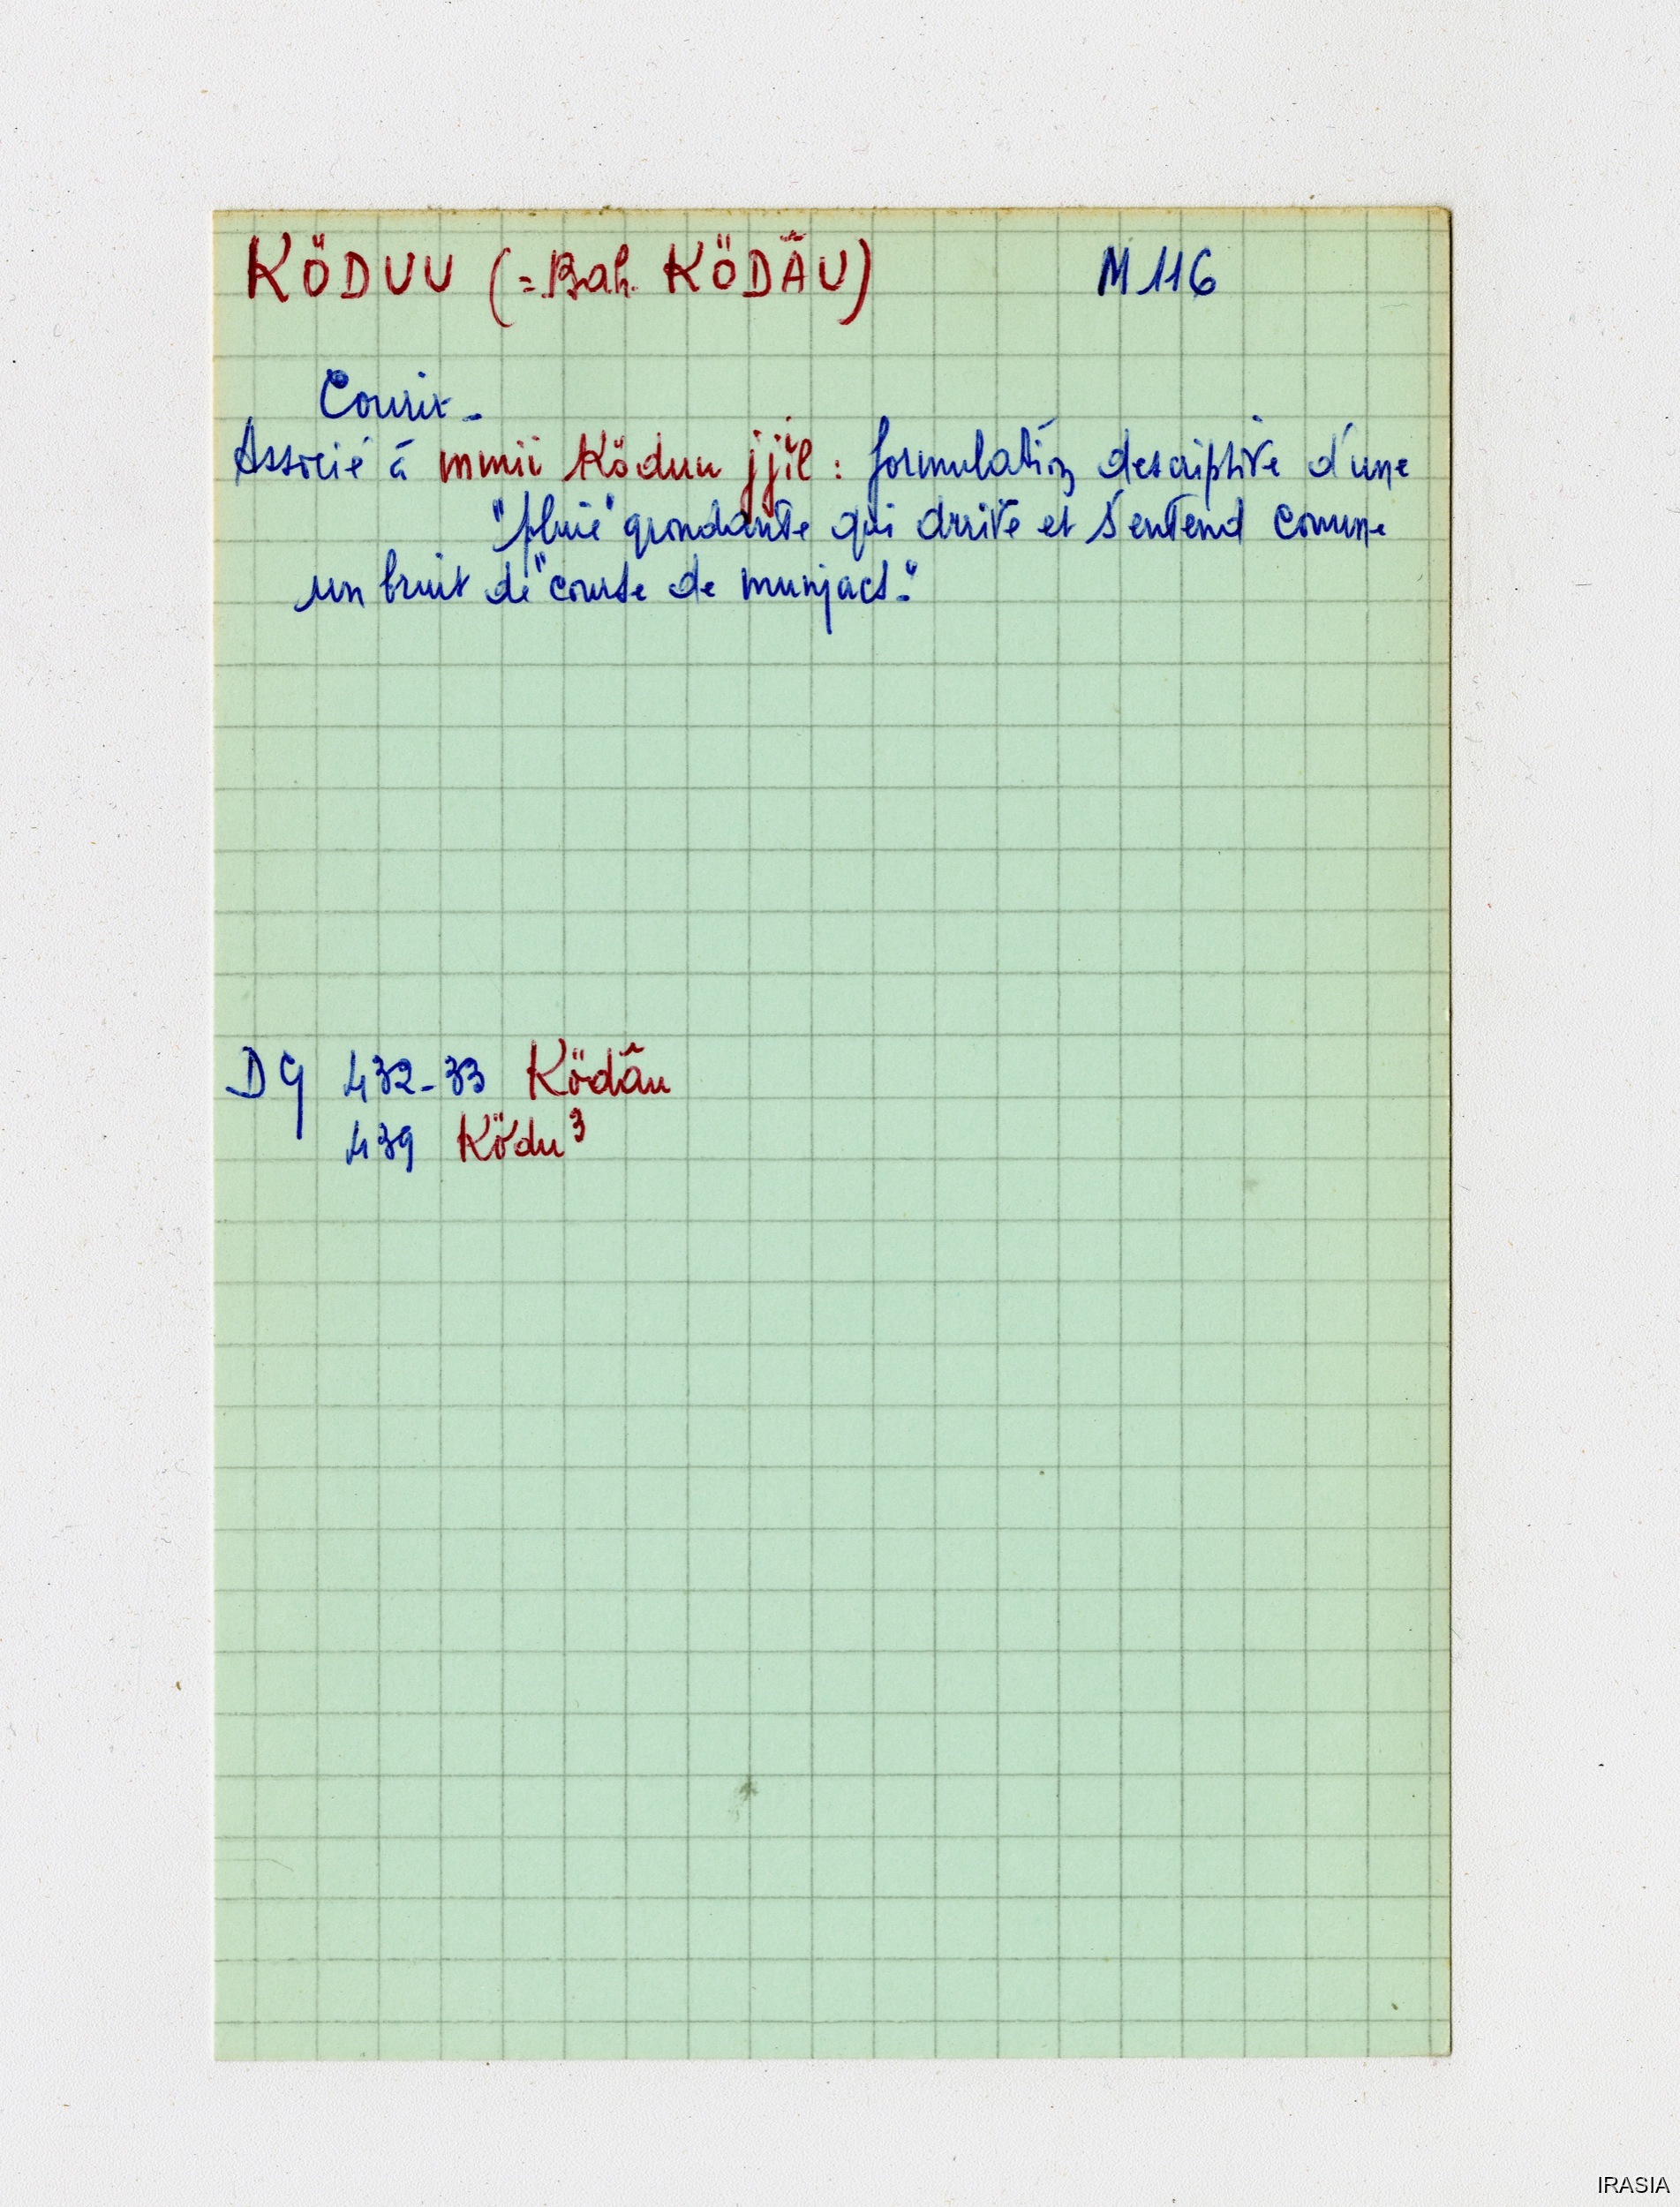 KÖDUU (= Bah. KÖDÂU) M 116
Courir.
Associé à mmii Köduu jjĭl : formulation descriptive d'une
"pluie" grondante qui arrive et s'entend comme
un bruit de "course de munjacs".
DG 432-33 Ködâu
439 Ködu³
IRASIA